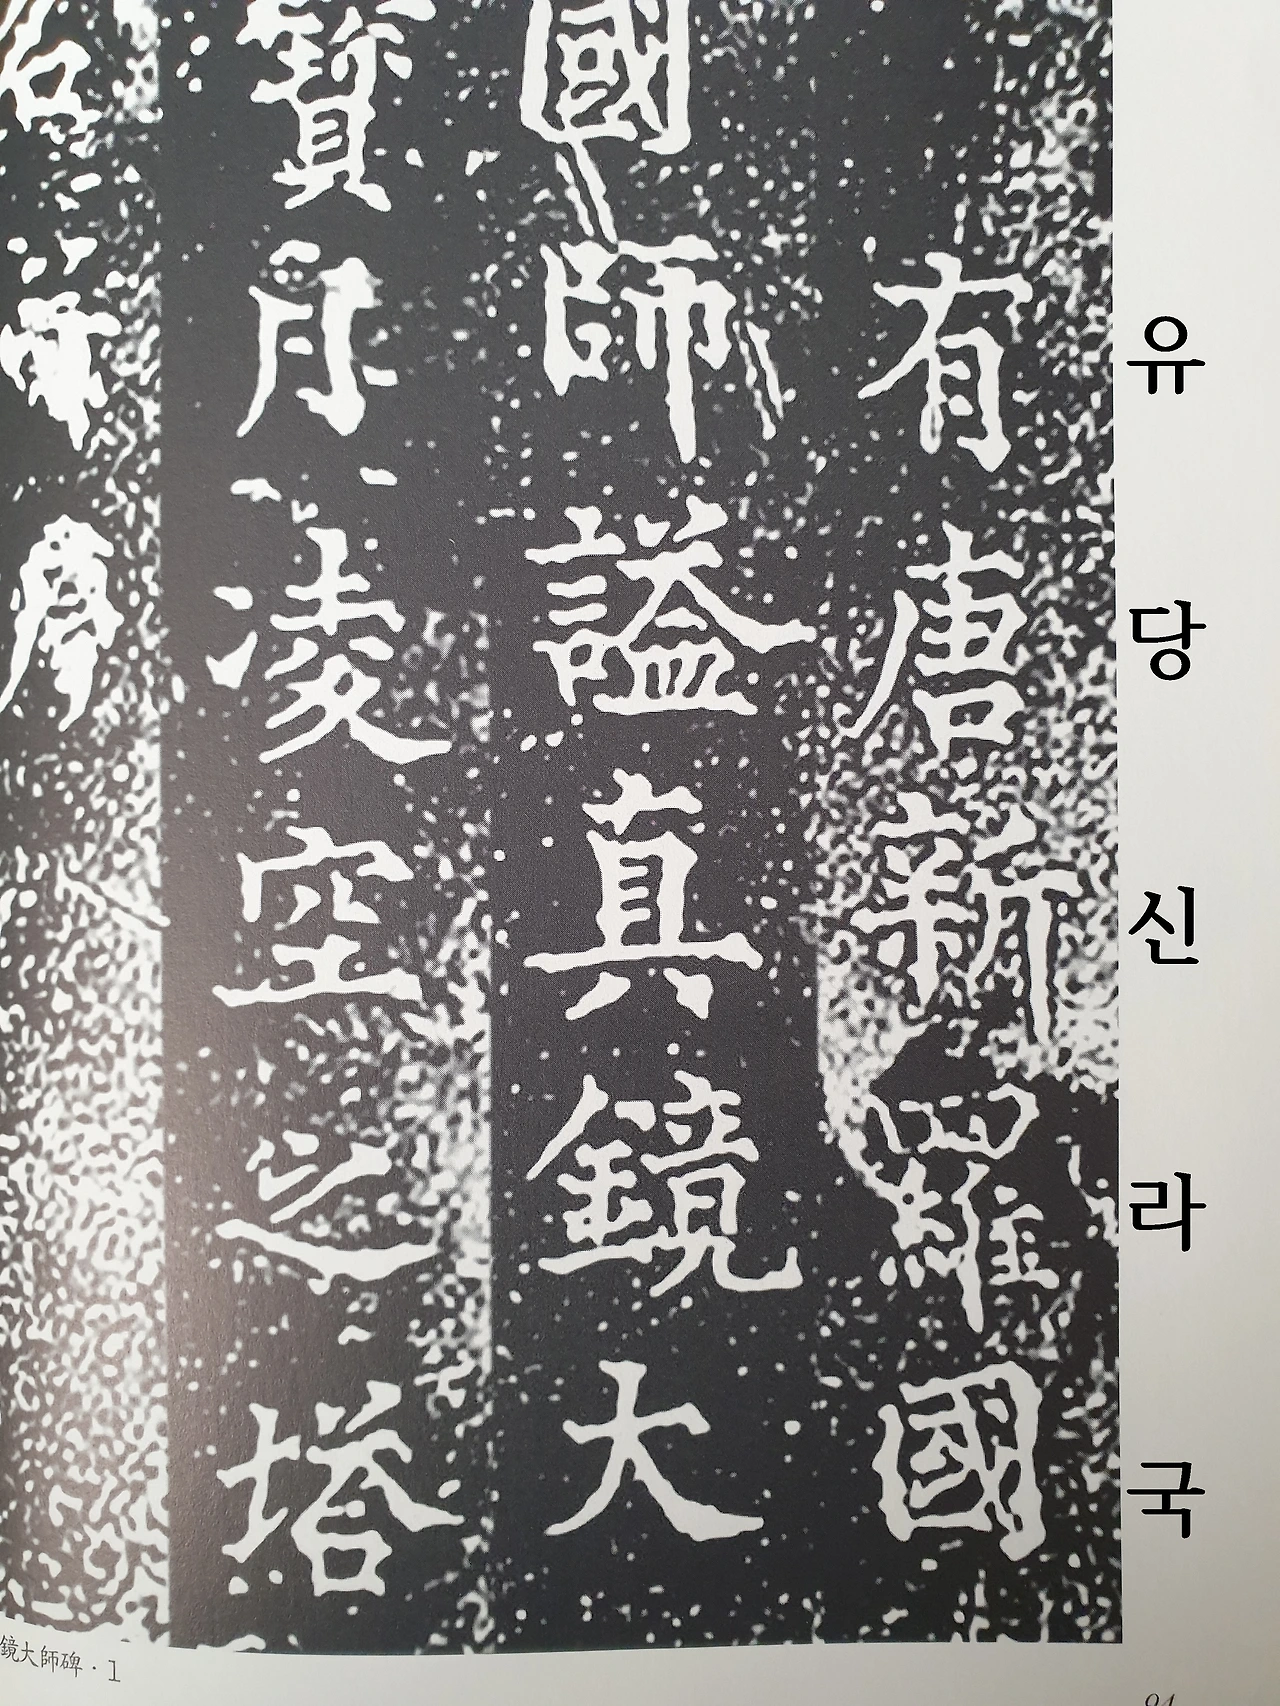 有唐新羅國
유당신라국
國師諡真鏡大
寶月凌空之塔
名
摩
鏡大師碑・1